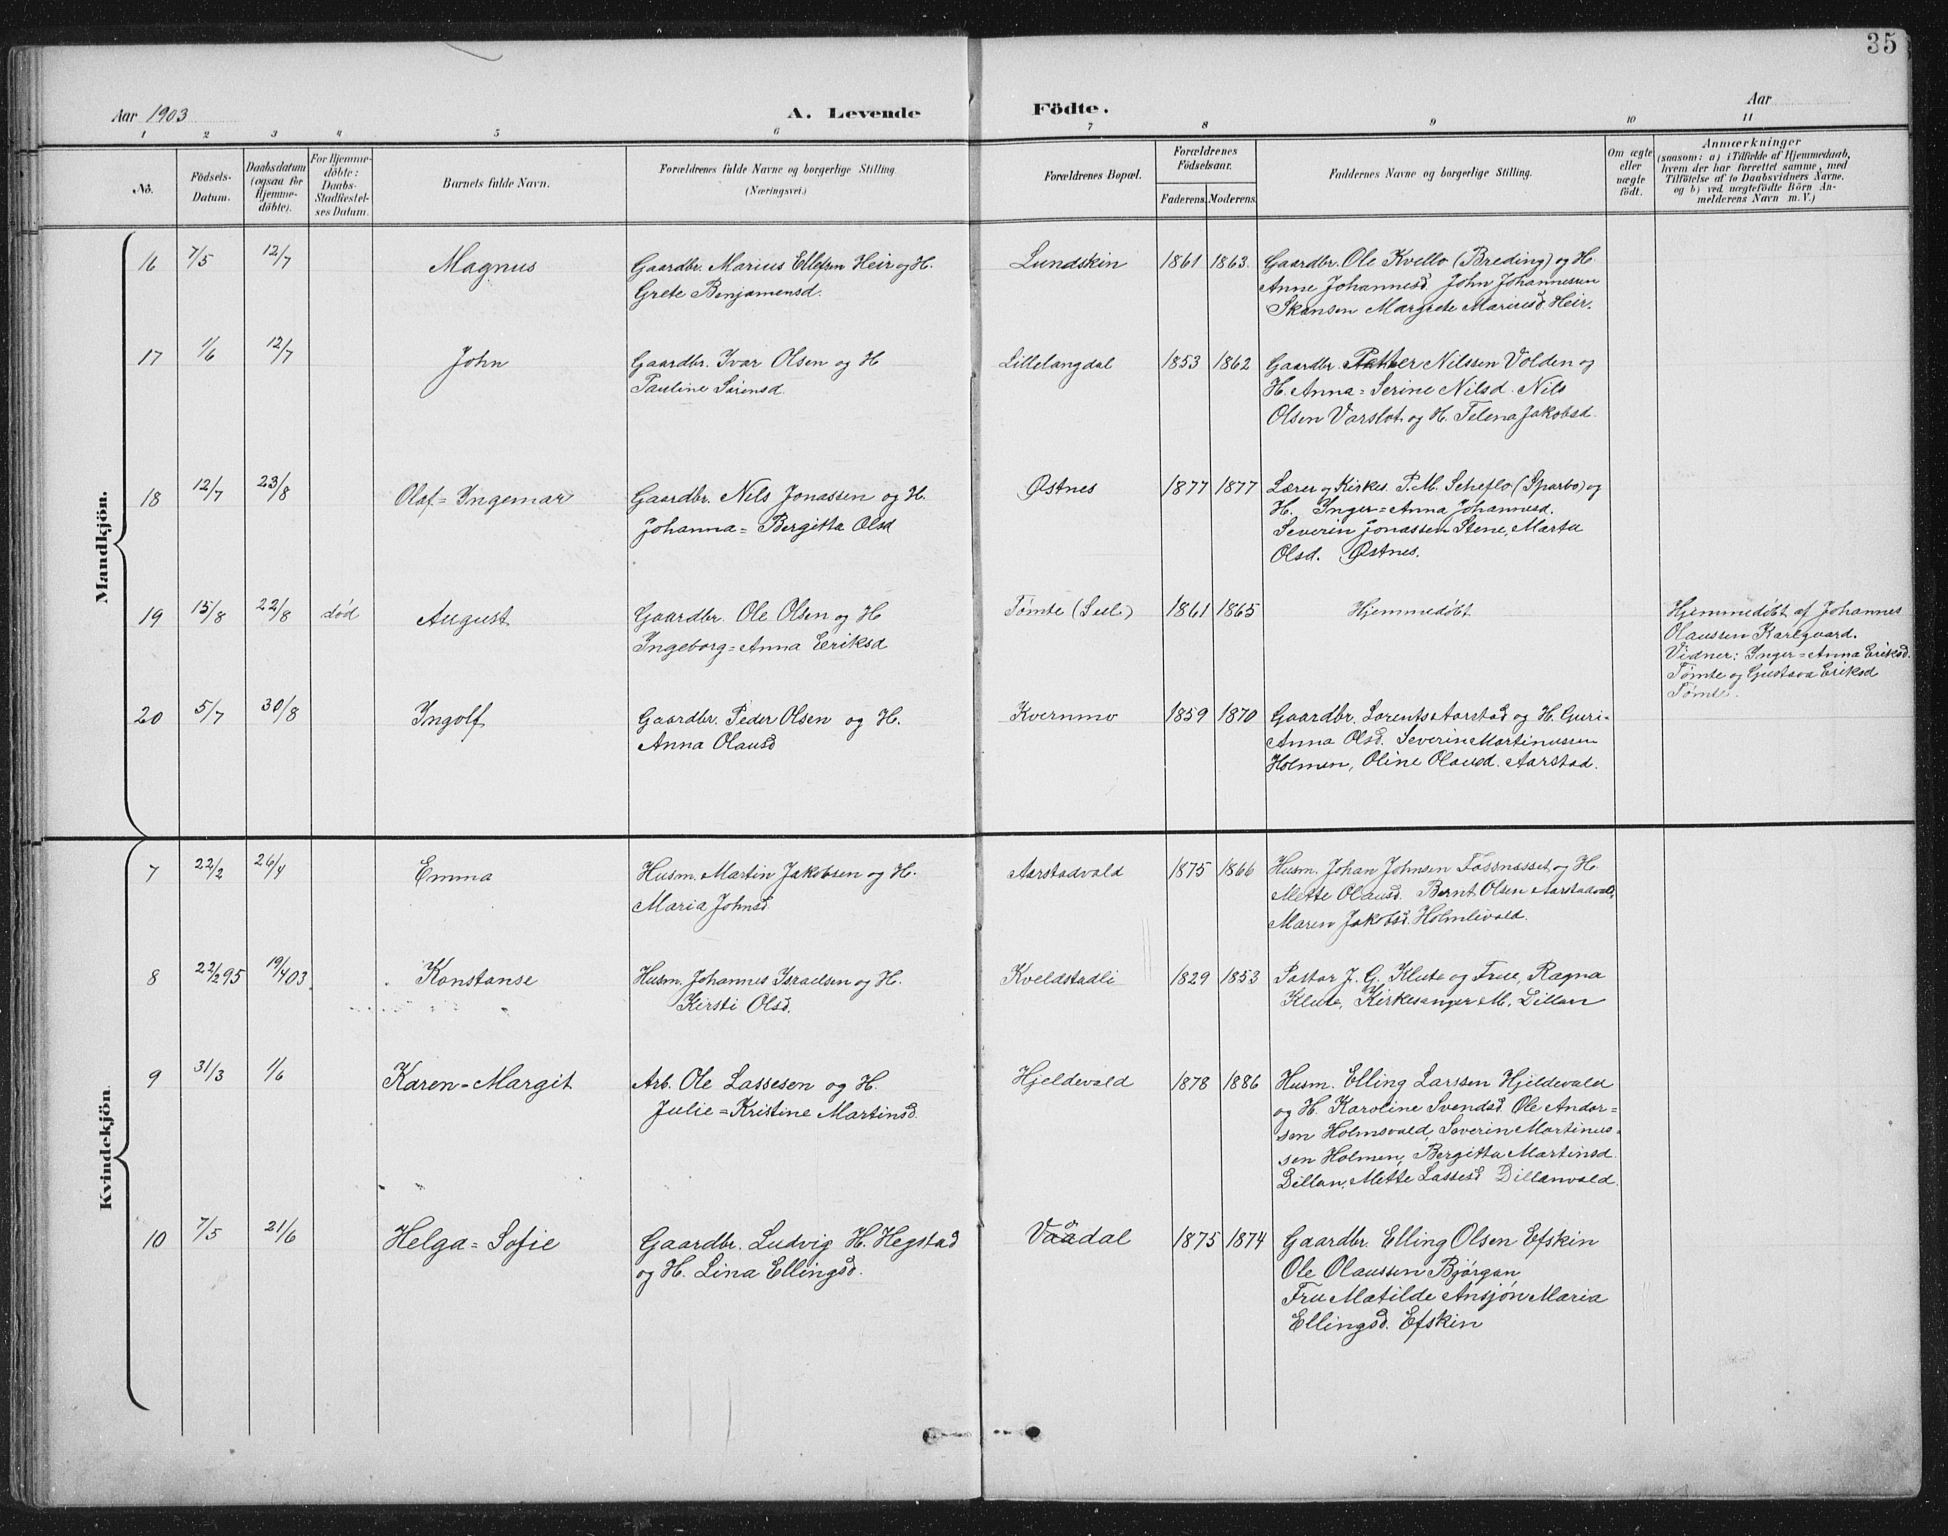 35
Aar 1903
A. Levende Födte.
Aar
1 2 3 4 5 6 7 8 9 10 11
No.
Födsels-
Datum.
Daabsdatum
(ogsaa for
Hjemme-
döbte).
For Hjemme-
döbte:
Daabs-
Stadfæstel-
ses Datum.
Barnets fulde Navn.
Forældrenes fulde Navne og borgerlige Stilling
(Næringsvei.)
Forældrenes Bopæl.
Forældrenes
Födselsaar.
Faderens. Moderens.
Faddernes Navne og borgerlige Stilling.
Om ægte
eller
uægte
födt.
Anmærkninger
(saasom: a) i Tilfælde af Hjemmedaab,
hvem der har forrettet samme, med
Tilföielse af to Daabsvidners Navne,
og b) ved uægtefödte Börn An-
melderens Navn m. V.)
Mandkjön.
16 7/5 12/7 Magnus Gaardbr. Marius Ellefsen Heir og H. Lundskin 1861 1863. Gaardbr. Ole Kvello (Breding) og H.
Grete Benjamensd. Anne Johannesd. John Johannessen
Skansen Margrete Mariusd. Heir.
17 1/6 12/7 John Gaardbr. Ivar Olsen og H Lillelangdal 1853 1862 Gaardbr. Petter Nilssen Volden og
Pauline Sørensd. H. Anna=Serine Nilsd. Nils
Olsen Varslot og H. Telena Jakobsd.
18 12/7 23/8 Olaf=Ingemar Gaardbr. Nils Jonassen og H. Østnes 1877 1877 Lærer og Kirkes. P. M. Scheflo (Sparbo) og
Johanna=Bergitta Olsd H. Inger=Anna Johannesd.
Severin Jonassen Stene, Marta
Olsd. Østnes.
19 15/8 22/8 død August Gaardbr. Ole Olsen og H Tømte (Sul) 1861 1865 Hjemmedøbt Hjemmedøbt af Johannes
Ingeborg=Anna Eriksd Olaussen Karlgaard.
Vidner: Inger=Anna Eriksd.
Tømte og Gustava Eriksd
Tømte.
20 5/7 30/8 Ingolf Gaardbr. Peder Olsen og H. Kvernmo 1859 1870 Gaardbr. Lorents Aarstad og H. Guri-
Anna Olausd Anna Olsd. Severin Martinussen
Holmen, Oline Olausd. Aarstad.
Kvindekjön
7 22/2 26/4 Emma Husm. Martin Jakobsen og H. Aarstadvald 1875 1866 Husm. Johan Johnsen Fossnasset og H.
Maria Johnsd Mette Olausd. Bernt Olsen Aarstadvald,
Maren Jakobsd. Holmlivald.
8 22/2 95 19/4 03. Konstanse Husm. Johannes Israelsen og H. Kveldstadli 1829 1853 Pastor J. G. Klute og Frue, Ragna
Kirsti Olsd. Klute, Kirkesanger M. Dillan
9 31/3 1/6 Karen-Margit Arb. Ole Lassesen og H. Hjeldevald 1878 1886 Husm. Elling Larssen Hjeldevald
Julie=Kristine Martinsd. og H. Karoline Svendsd. Ole Ander=
sen Holmsvald, Severin Martinus=
sen Holmen, Bergitta Martinsd.
Dillan, Mette Lassesd Dillanvald.
10 7/5 21/6 Helga=Sofie Gaardbr. Ludvig H. Hegstad Vaadal 1875 1874 Gaardbr. Elling Olsen Efskin
og H. Lina Ellingsd. Ole Olaussen Bjørgan
Fru Matilde Ansjøn Maria
Ellingsd. Efskin